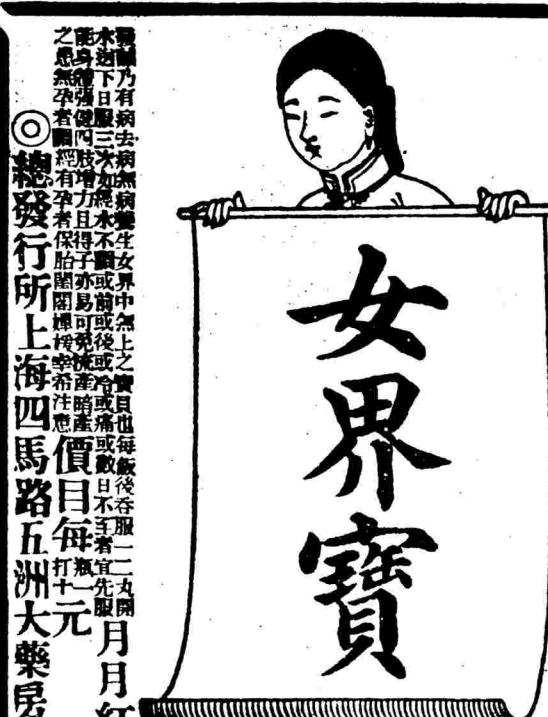 女界寶
乃有病去病無病養生女界中無上之寶貝也每飯後吞服一二丸開
水送下日服三次如經水不調或前或後或冷或痛或數日不至者宜先服月月紅
能身體強健四肢增力且得子亦易可免流產暗產
之患無孕者調經有孕者保胎閨閣嬋媛幸希注意
價目每瓶一元打十元
◎總發行所上海四馬路五洲大藥房